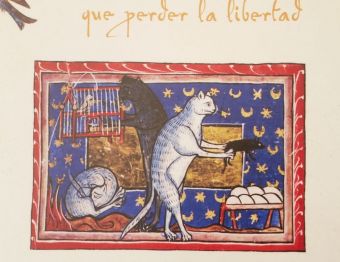 que perder la libertad